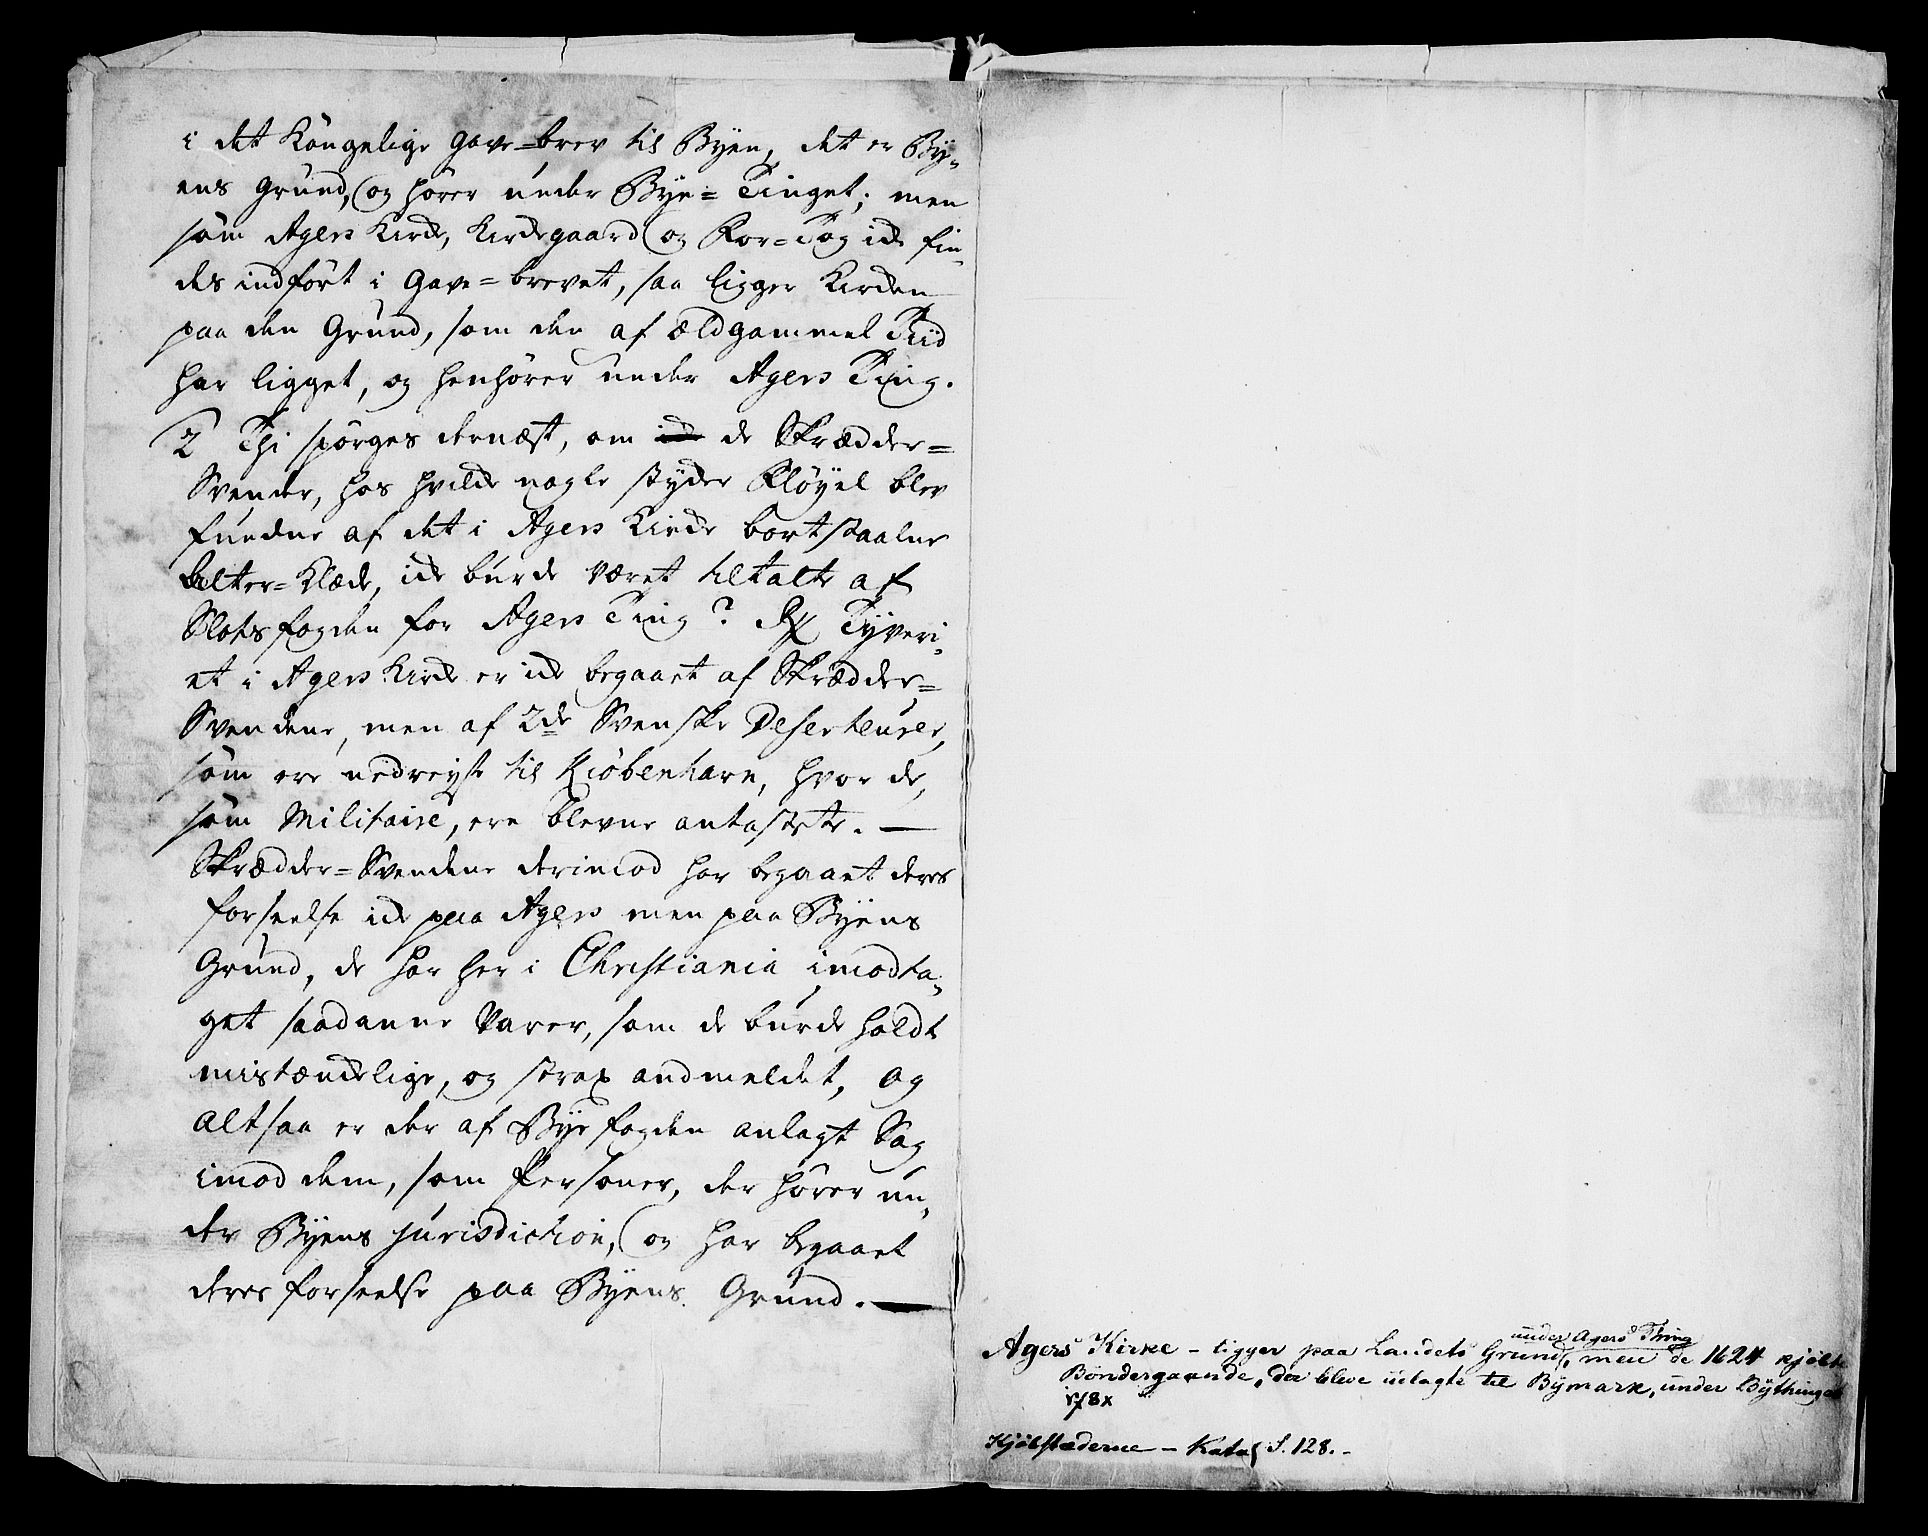 i det Kongelige Gave=brev til Byen, det er By„
ens Grund, og hører under Bye=Tinget; men
som Agers Kirke, Kirkegaard og Kor=Tog ike fin„
des indført i Gave=brevet, saa ligger Kirken
paa den Grund, som den af ældgammel Tiid
har ligget, og henhører under Agers Ting.
2 Thi spørges dernæst, om de Skrædder=
Svenne, hos hvilke nogle styker Fløyel blev
fundne af det i Agers Kirke bortstaalne
Alter=Klæde, ike burde været tiltalte af
Slotsfogden for Agers Ting? Rx Tyveri„
et i Agers Kirke er ike begaaet af Skrædder=
Svendene, men af 2de Svenske Deserteurer,
som ere nedreyste til Kiøbenhavn, hvor de,
som Militaire, ere blevne antastete. —
Skrædder=Svendene derimod har begaaet deres
forseelse ike paa Agers men paa Byens
Grund, de har her i Christiania imodta„
get saadanne Varer, som de burde holdt
mistænkelige, og strax andmeldet, og
altsaa er der af Byefogden anlagt Sag
imod dem, som Personer, der hører un„
der Byens Jurisdiction, og har begaaet
deres forseelse paa Byens Grund. —
under Agers Thing
Agers Kirke – ligger paa Landets Grund, men de 1624 kjøbte
Bøndergaarde, der bleve udlagte til Bymark, under Bythinget
178x
Kjøbstæderne – Katal S. 128. –